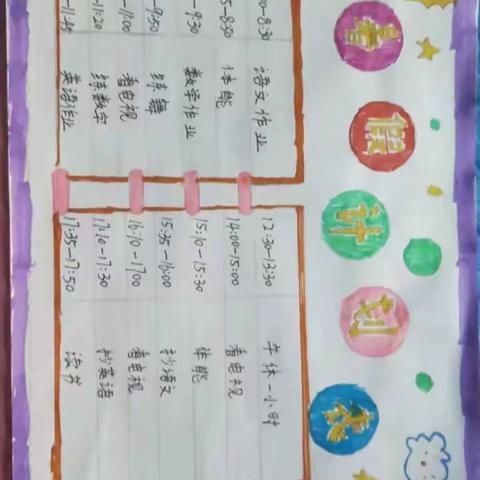 暑假计划表
00-8:30 语文作业
5-8:50 体能
-9:30 数学作业
-9:50 练舞
-11:00 看电视
-11:20 练数字
-11:45 英语作业
12:30-13:30 午休一小时
14:00-15:00 看电视
15:10-15:30 体能
15:35-16:00 抄语文
16:10-1700 看电视
17:10-17:30 抄英语
17:35-17:50 读书